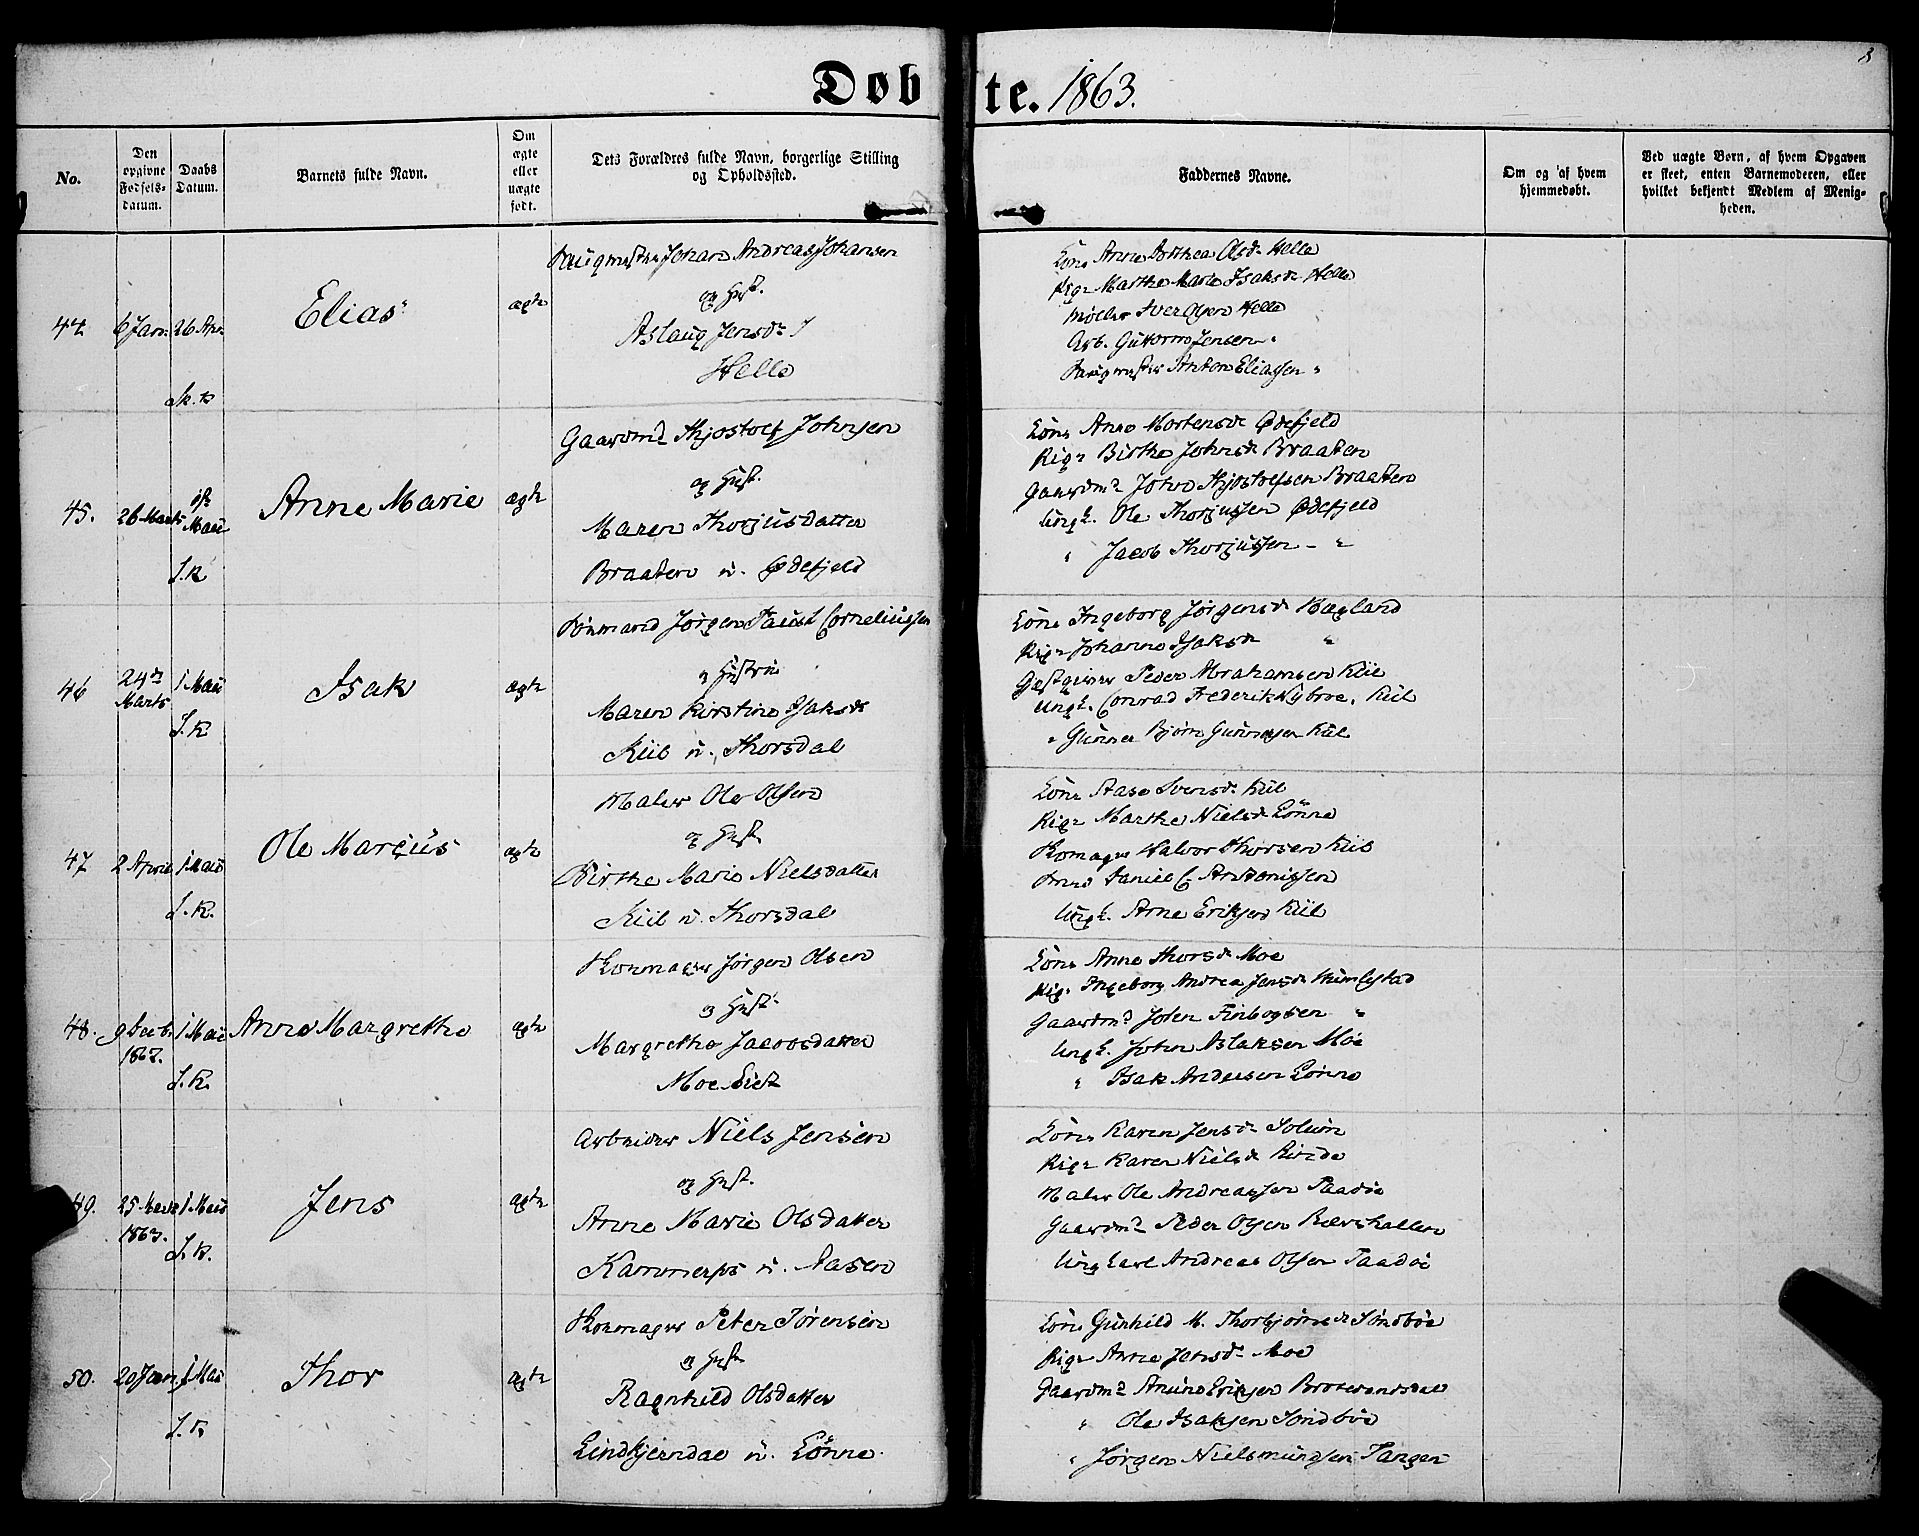 Døbte. 1863.
8
No.
Den opgivne Fødsels-datum.
Daabs Datum.
Barnets fulde Navn.
Om ægte eller uægte født.
Dets Forældres fulde Navn, borgerlige Stilling og Opholdssted.
Faddernes Navne.
Om og af hvem hjemmedøbt.
Ved uægte Børn, af hvem Opgaven er skeet, enten Barnemoderen, eller hvilket bekjendt Medlem af Menigheden.
44. 6 Jan. 26 Apr. Sk. K Elias ægte
Johan Andreas Johansen
og Hust.
Aslaug Jensd.
Helle
Kone Anne Dorthea Olsd. Helle
Pige Marthe Marie Isaksd. Helle
Møller Iver Olsen Helle
Arb. Guttorm Jensen "
Anton Eliassen "
45. 26 Marts 1ste Maii S. K Anne Marie ægte
Gaardmd. Thjostolf Johnsen
og Hust.
Maren Thorjusdatter
Braaten u. Ødefjeld
Kone Anne Mortensd. Ødefjeld
Pige Birthe Johnsd. Braaten
Gaardmd. John Thjostolfsen Braaten
Ungk. Ole Thorjussen Ødefjeld
" Jacob Thorjussen - "
46 24de Marts 1 Maii S. K Isak ægte
Jørgen Faust Corneliussen
og Hustru
Maren Kirstine Isaksd.
Kiil u. Thorsdal
Kone Ingeborg Jørgensd. Hægland
Pige Johanne Isaksd. "
Gestgiver Peder Abrahamsen Kiil
Ungk. Conrad Frederik Nybroe. Kiil
" Gunner Bjørn Gunnersen Kiil
47 2 April 1 Maii S. K. Ole Marcius ægte
Maler Ole Olsen
og Hust.
Birthe Marie Nielsdatter
Kiil u. Thorsdal
Kone Aase Iversd. Kiil
Pige Marthe Nielsd. Lønne
Skomager Halvor Thorsen Kiil
Daniel C. Antonissen
Ungk. Arne Eriksen Kiil
48. 9 Decb. 1862. 1 Maii S. K. Anne Margrethe ægte
Skomager Jørgen Olsen
og Hust.
Margrethe Jacobsdatter
Moe Eiet
Kone Anne Thorsd. Moe
Pige Ingeborg Andrea Jensd. Humlestad
Gaardmd. John Finbogsen "
Ungk. John Aslaksen Moe
" Isak Andersen Lønne
49. 25 Marts 1863. 1 Maii S. K. Jens ægte
Arbeider Niels Jensen
og Hust.
Anne Marie Olsdatter
Kammerfos u. Aasen
Kone Karen Jensd. Solum
Pige Karen Nielsd.
Maler Ole Andreassen Saadøe
Gaardmd. Peder Olsen Bærehallen
Ungkarl Andreas Olsen Saadøe
50. 20 Jan. 1 Maii S. K Thor ægte
Skomager Peter Sørensen
og Hust.
Ragnhild Olsdatter
Lindtjerndal u. Lønne.
Kone Gunhild M. Thorbjørnsd. Søndbøe
Pige Anne Jensd. Moe
Gaardmd. Amund Eriksen
" Ole Isaksen Søndbøe
" Jørgen Nielsmundsen Tangen